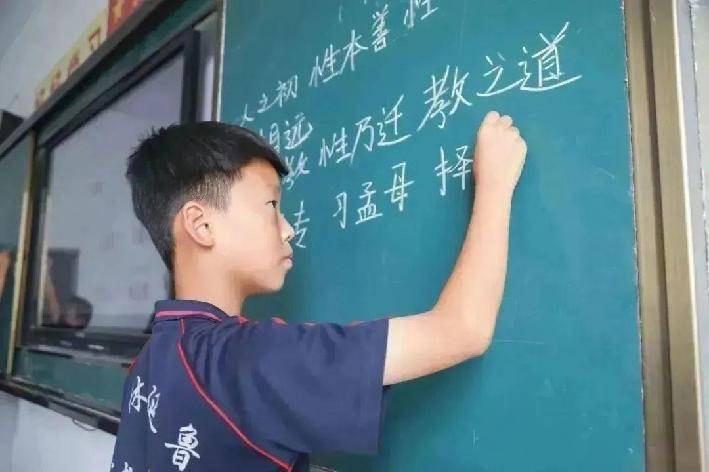 之初 性本善 性
远
教 性乃迁 教之道
专 习孟母 择
鲁